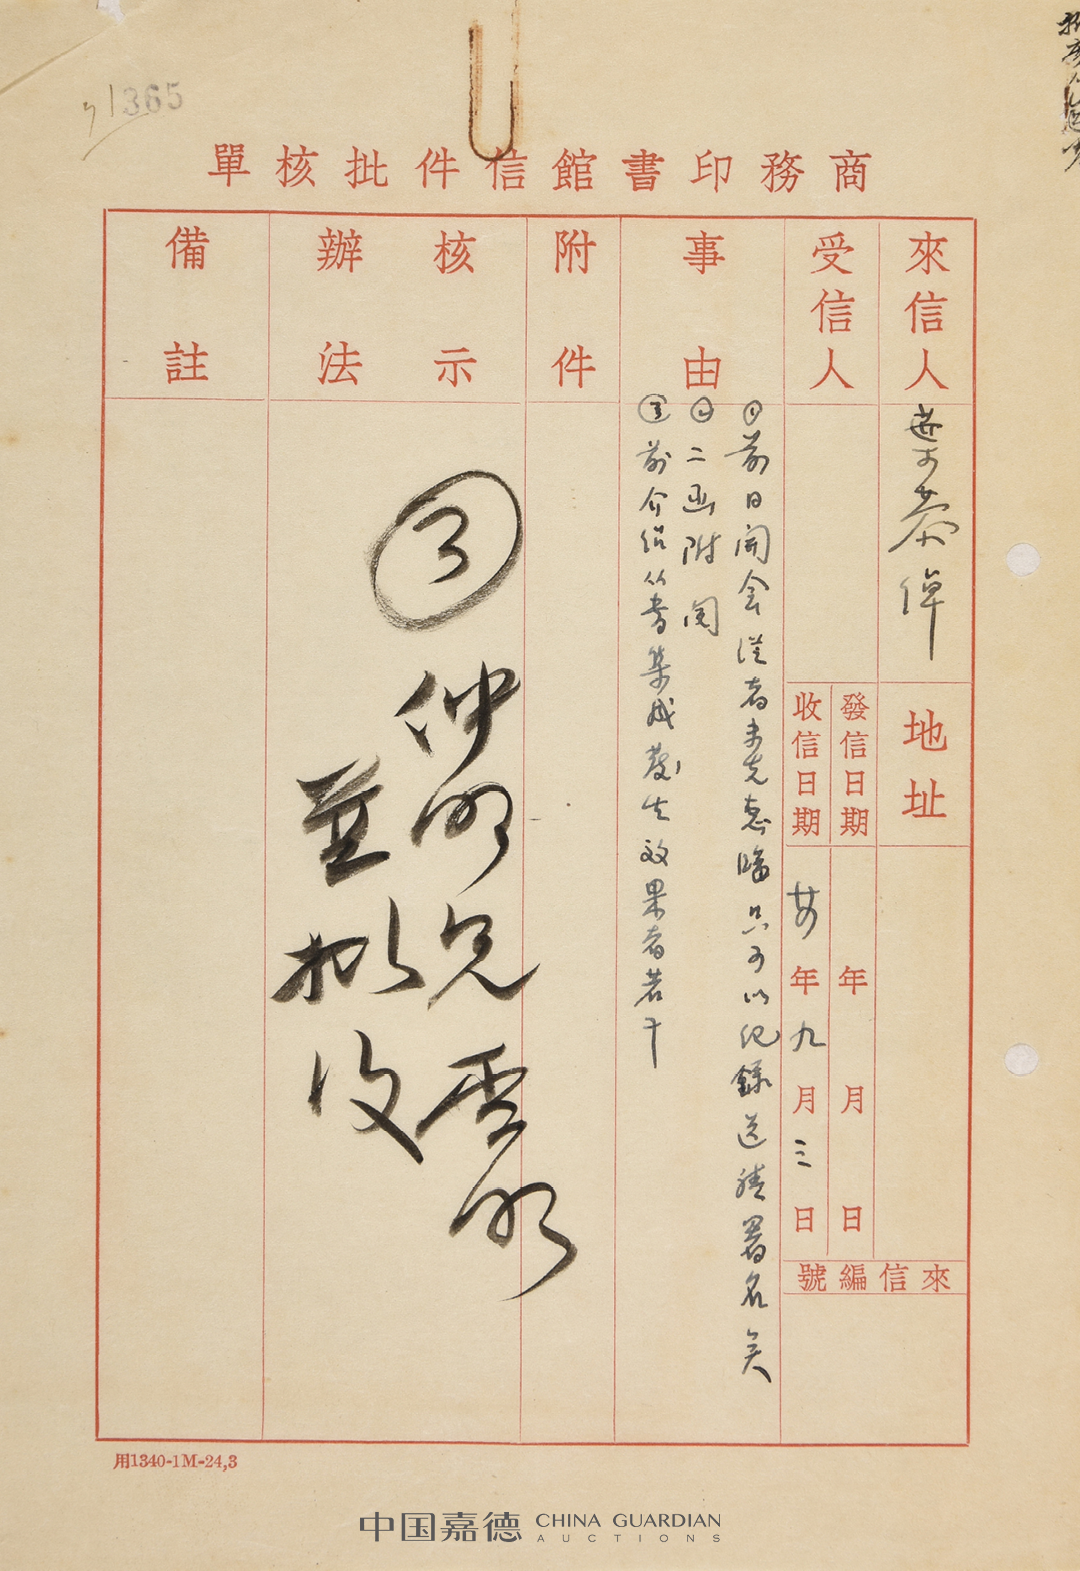 1365
商務印書館信件批核單
來信人
葉恭綽
地址
受信人
發信日期
年 月 日
收信日期
廿 年九月三日
來信編號
事由
①前日開會從者未克惠臨只可以紀錄送請署名矣
②二函附閱
③前介紹 書集成發生效果者若干
附件
核示辦法
③
仲明兄
並批收
備註
用1340-1M-24,3
中国嘉德 CHINA GUARDIAN
AUCTIONS